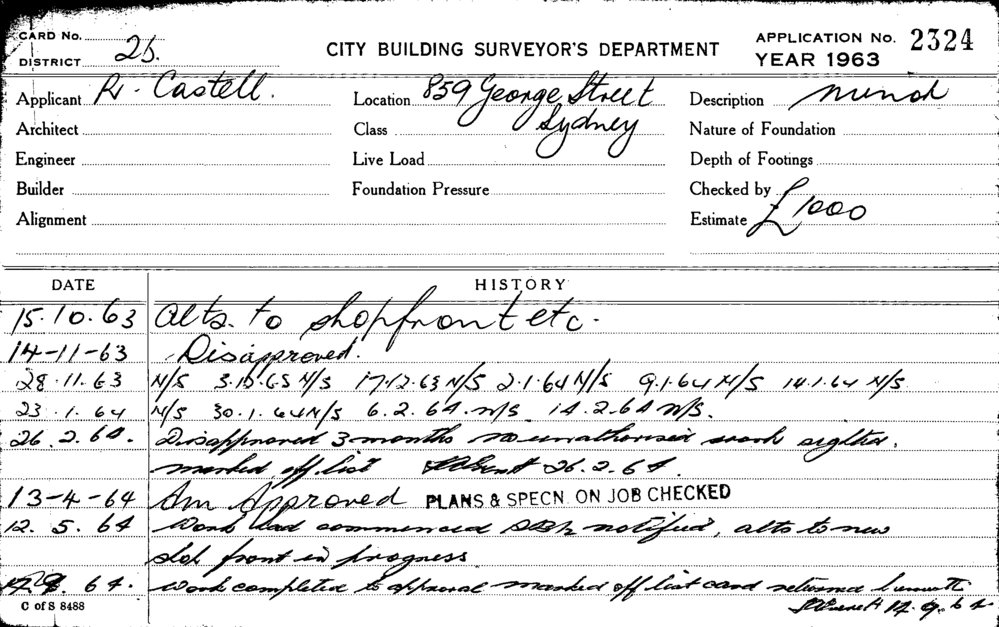 CARD No.
DISTRICT 2b.
CITY BUILDING SURVEYOR'S DEPARTMENT
APPLICATION No. 2324
YEAR 1963
Applicant R. Castell.
Location 859 George Street
Sydney
Description
Architect
Class
Nature of Foundation
Engineer
Live Load
Depth of Footings
Builder
Foundation Pressure
Checked by
Alignment
Estimate £1000
DATE HISTORY
15.10.63 Alts. to shopfront etc.
14-11-63 Disapproved.
28.11.63 N/S 3.12.63 N/S 17.12.63 N/S 2.1.64 N/S 9.1.64 N/S 14.1.64 N/S
23.1.64 N/S 30.1.64 N/S 6.2.64. N/S 14.2.64 N/S.
26.2.64. Disapproved 3 months no unathorised work sighted.
marked off list 26.2.64.
13-4-64 Am Approved PLANS & SPECN. ON JOB CHECKED
12.5.64 Work had commenced notified, alts to new
shop front in progress
64. Work completed to approval marked off list card returned herewith
C of S 8488
14.9.64